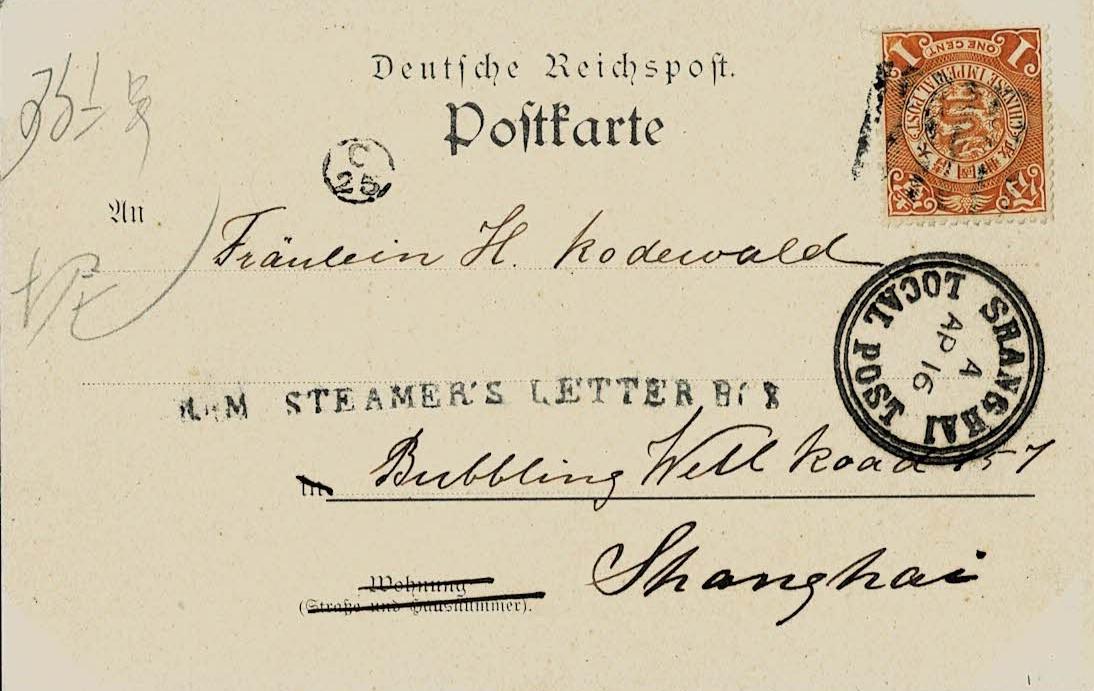 Deutsche Reichspost.
Postkarte
1 ONE CENT. 1
CHINESE IMPERIAL POST
C
25
An
Fräulein H. Rodewald
FROM STEAMER'S LETTER BOX
SHANGHAI LOCAL POST
A
AP 16
in
Bubbling Well Road 157
Shanghai
Wohnung
(Straße und Hausnummer).